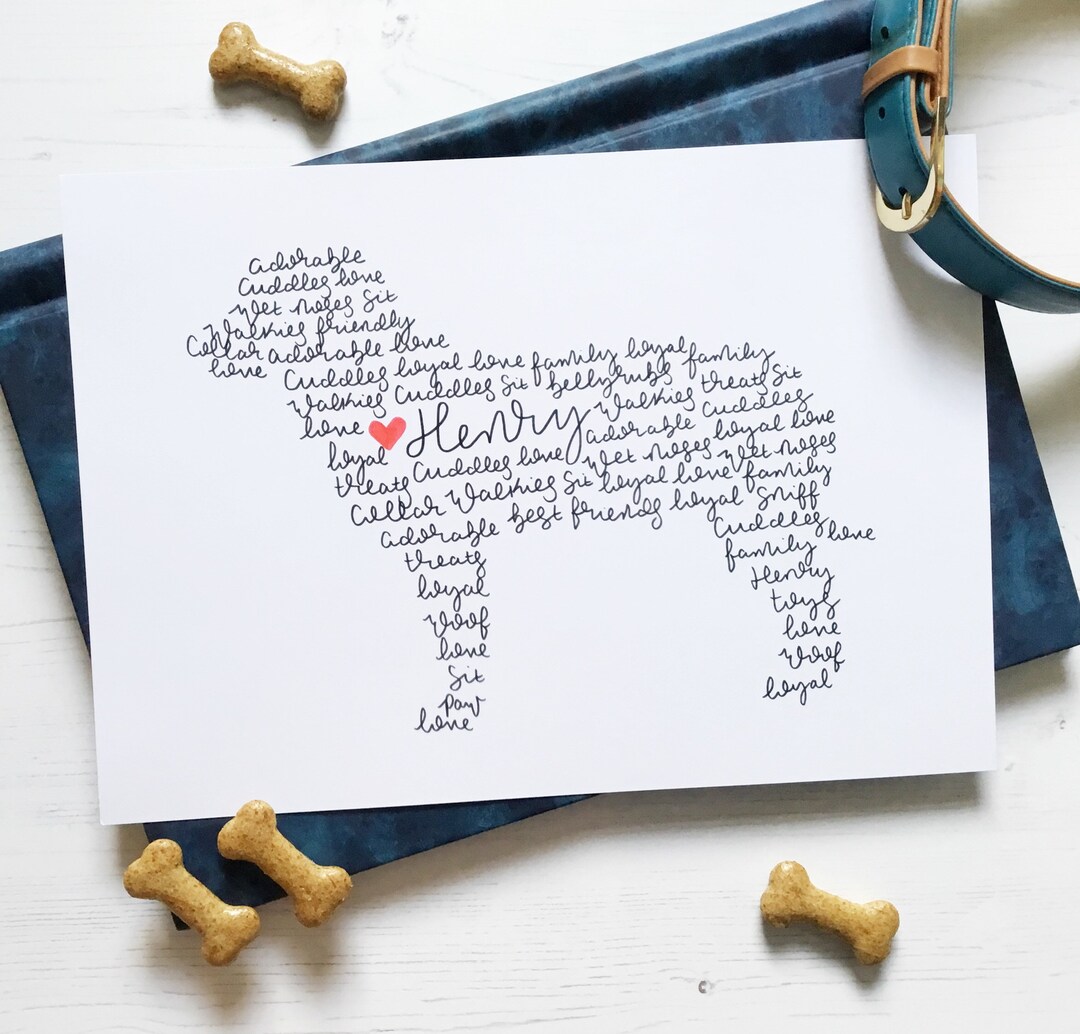 adorable
Cuddles love
wet noses Sit
Walkies friendly
Collar adorable love
love Cuddles loyal love family loyal family
Walkies Cuddles Sit bellyrubs Walkies treats Sit
love Henry adorable Cuddles
loyal Cuddles love wet noses loyal love
treats Walkies Sit loyal love wet noses
Collar best friends loyal family
adorable Sniff
treats Cuddles
loyal family love
Woof Henry
love toys
Sit love
paw Woof
love loyal